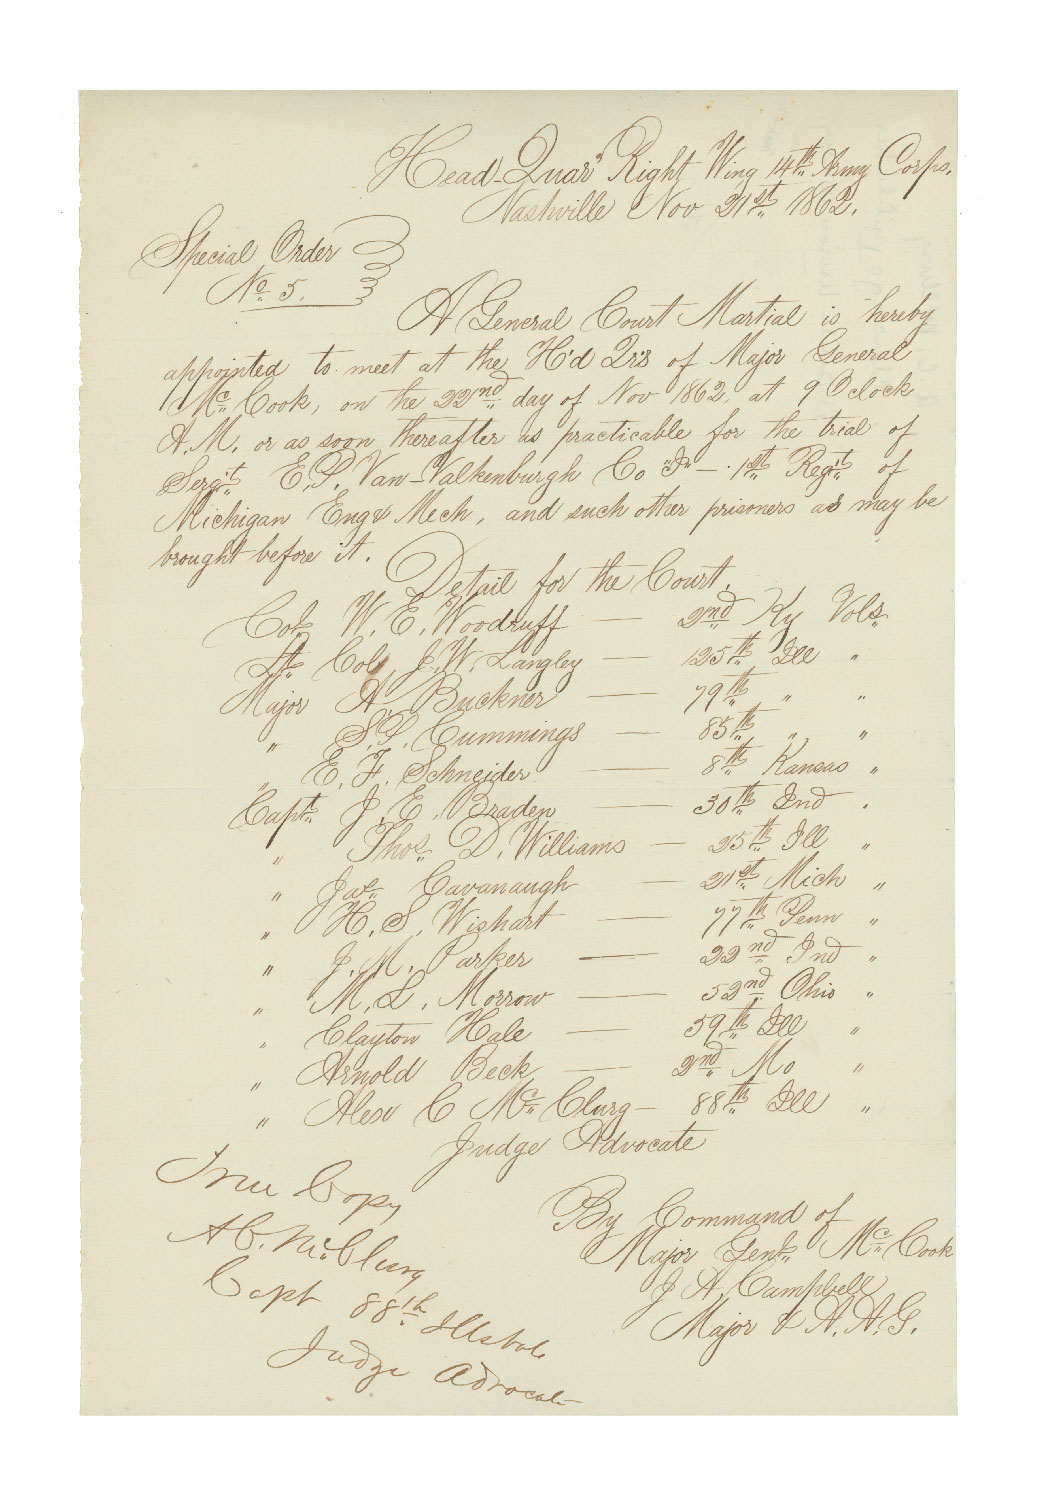 Head-Quars Right Wing 14th Army Corps.
Nashville Nov 21st 1862.
Special Order
No 5.
A General Court Martial is hereby
appointed to meet at the H'd Qr's of Major General
Mc Cook, on the 22nd day of Nov 1862, at 9 O clock
A.M. or as soon thereafter as practicable for the trial of
Serg't E.P. Van-Valkenburgh Co "I" - 1st Reg't of
Michigan Eng & Mech, and such other prisoners as may be
brought before it.
Detail for the Court.
Col. W. E. Woodruff — 2nd Ky Vols
Lt Col J. W. Langley — 125th Ill "
Major A Buckner — 79th " "
" S.P. Cummings — 85th " "
" E. F. Schneider — 8th Kansas "
Capt J. E. Braden — 30th Ind "
" Thos D. Williams — 25th Ill "
" Jas Cavanaugh — 21st Mich "
" H. S. Wishart — 77th Penn "
" J. M. Parker — 22nd Ind "
" M. L. Morrow — 52nd Ohio "
" Clayton Hale — 59th Ill "
" Arnold Beck — 2nd Mo "
" Alex C Mc Clurg — 88th Ill "
Judge Advocate
By Command of
Major Genl. Mc Cook
J A. Campbell
Major & A. A. G.
True Copy
A C. McClurg
Capt 88th Ills Vols
Judge Advocate